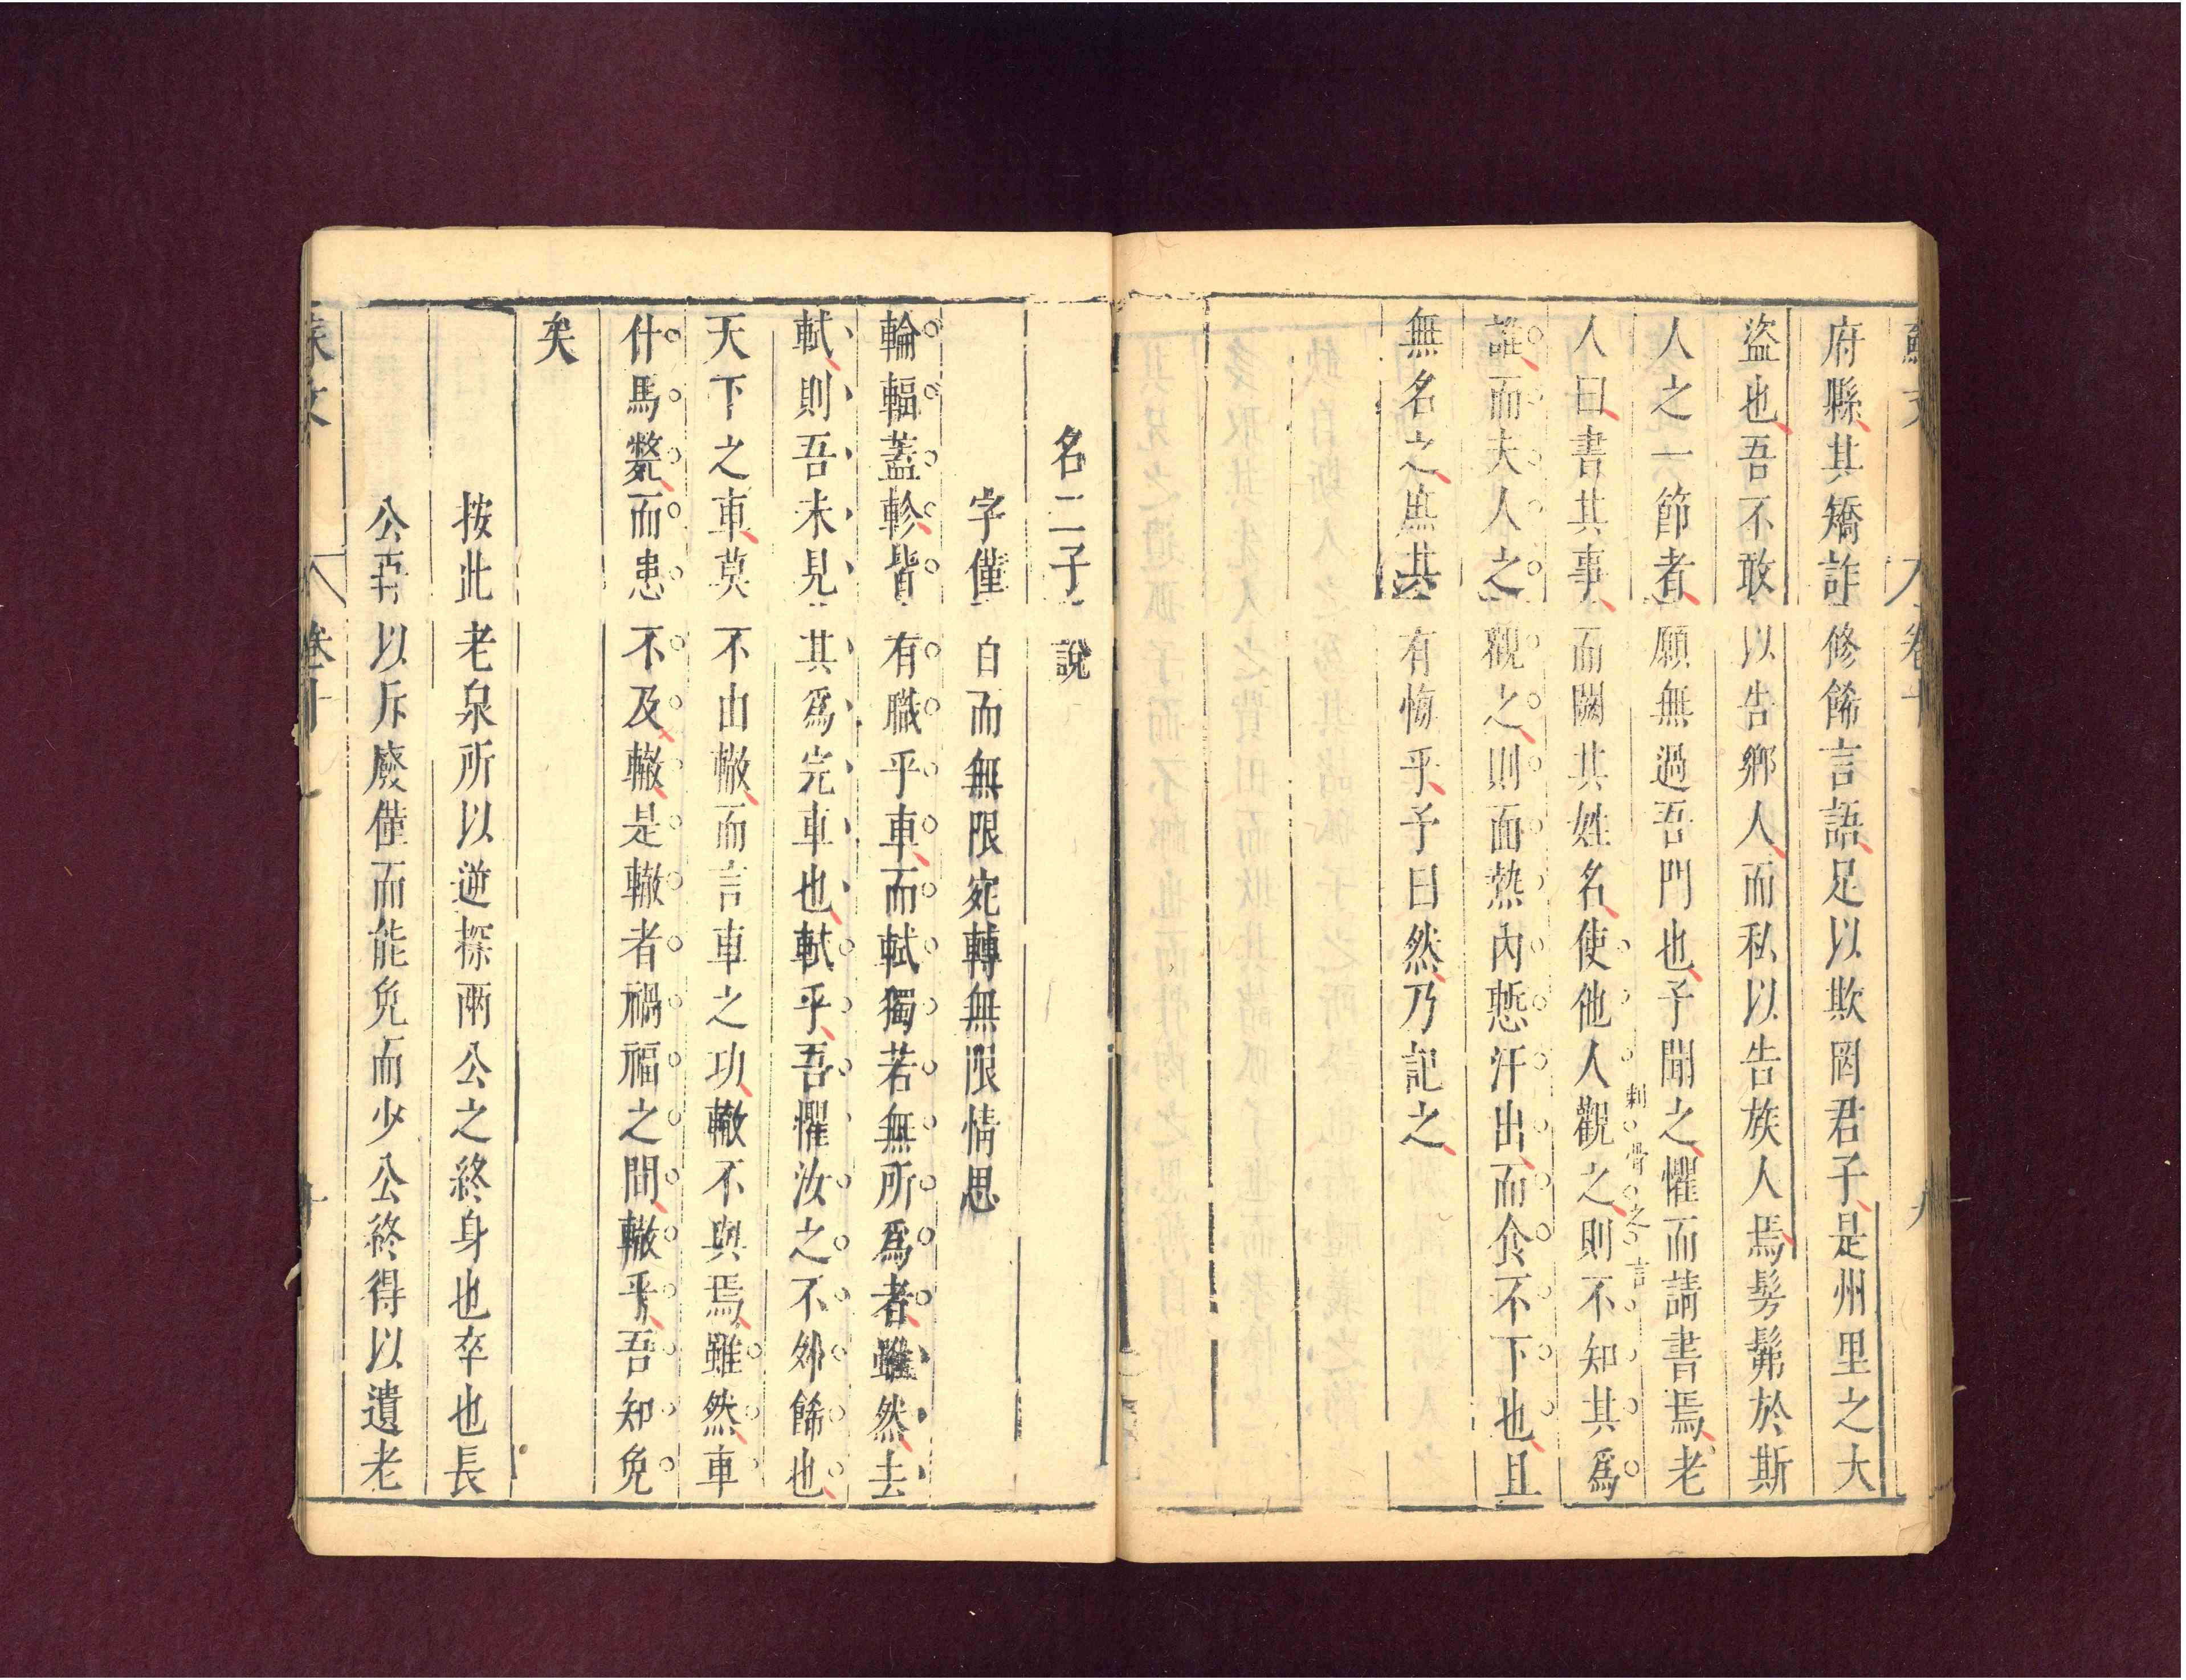 府縣其矯詐修餙言語足以欺罔君子是州里之大
盜也吾不敢以告鄉人而私以告族人焉髣髴於斯
人之一節者願無過吾門也予聞之懼而請書焉老
人曰書其事而闕其姓名使他人觀之則不知其爲
刺骨之言
誰而夫人之觀之則面熱內慙汗出而食不下也且
無名之庶其有悔乎予曰然乃記之
名二子說
字僅百而無限宛轉無限情思
輪輻蓋軫皆有職乎車而軾獨若無所爲者雖然去
軾則吾未見其爲完車也軾乎吾懼汝之不外餙也
天下之車莫不由轍而言車之功轍不與焉雖然車
什馬斃而患不及轍是轍者禍福之間轍乎吾知免
矣
按此老泉所以逆探兩公之終身也卒也長
公再以斥廢僅而能免而少公終得以遺老